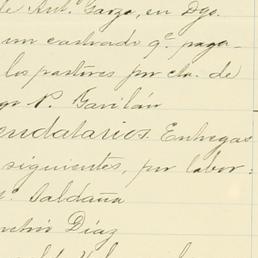 de Ant. Garza, en Dgo.
un castrado q.e paga-
los pastores por cta. de
go P. Gavilán
endatarios. Entregas
siguientes, por labor:
Saldaña
Díaz